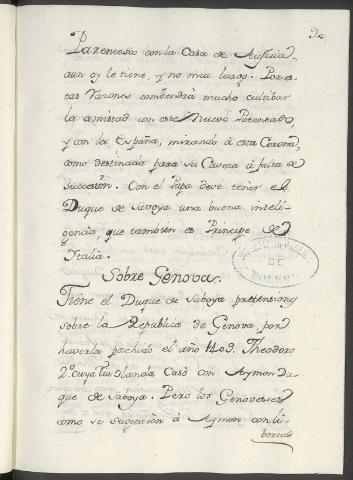 92
Parentesco con la Casa de Austria,
aun oy le tiene, y no mui largo. Por es-
tas Razones combendrà mucho cultibar
la amistad con este Nuevo Potentado,
y con la España, mirando à esta Corona,
como destinada para su Cavera à falta de
succesión. Con el Papa deve tener el
Duque de Saboya una buena inteli-
gencia, que tambien es Principe de
Italia.
Sobre Genova.
Tiene el Duque de Saboya pretensiones
sobre la Republica de Genova por
haverla posehido el año 1409. Theodoro
2º cuya tia Olanda Casò con Aymon Du-
que de Saboya. Pero los Genoveses
como se sugetaron à Aymon con li-
bertad